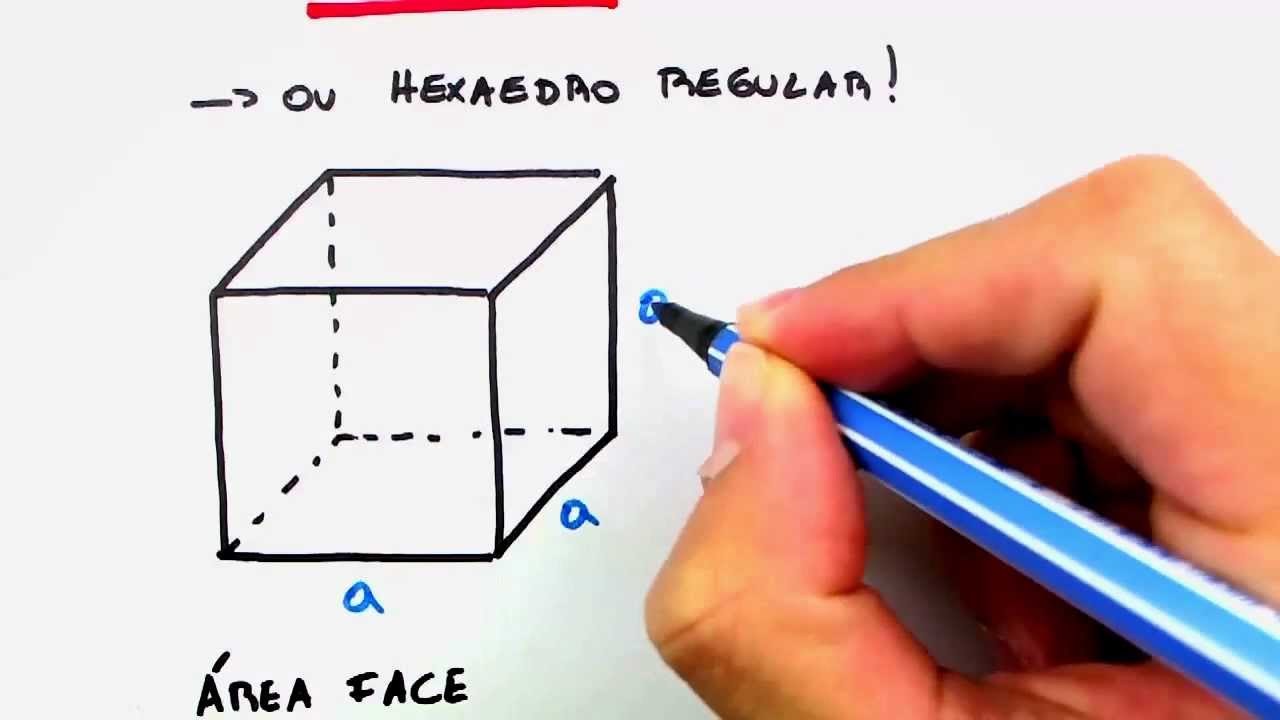 —> OU HEXAEDRO REGULAR!
a
a
a
ÁREA FACE